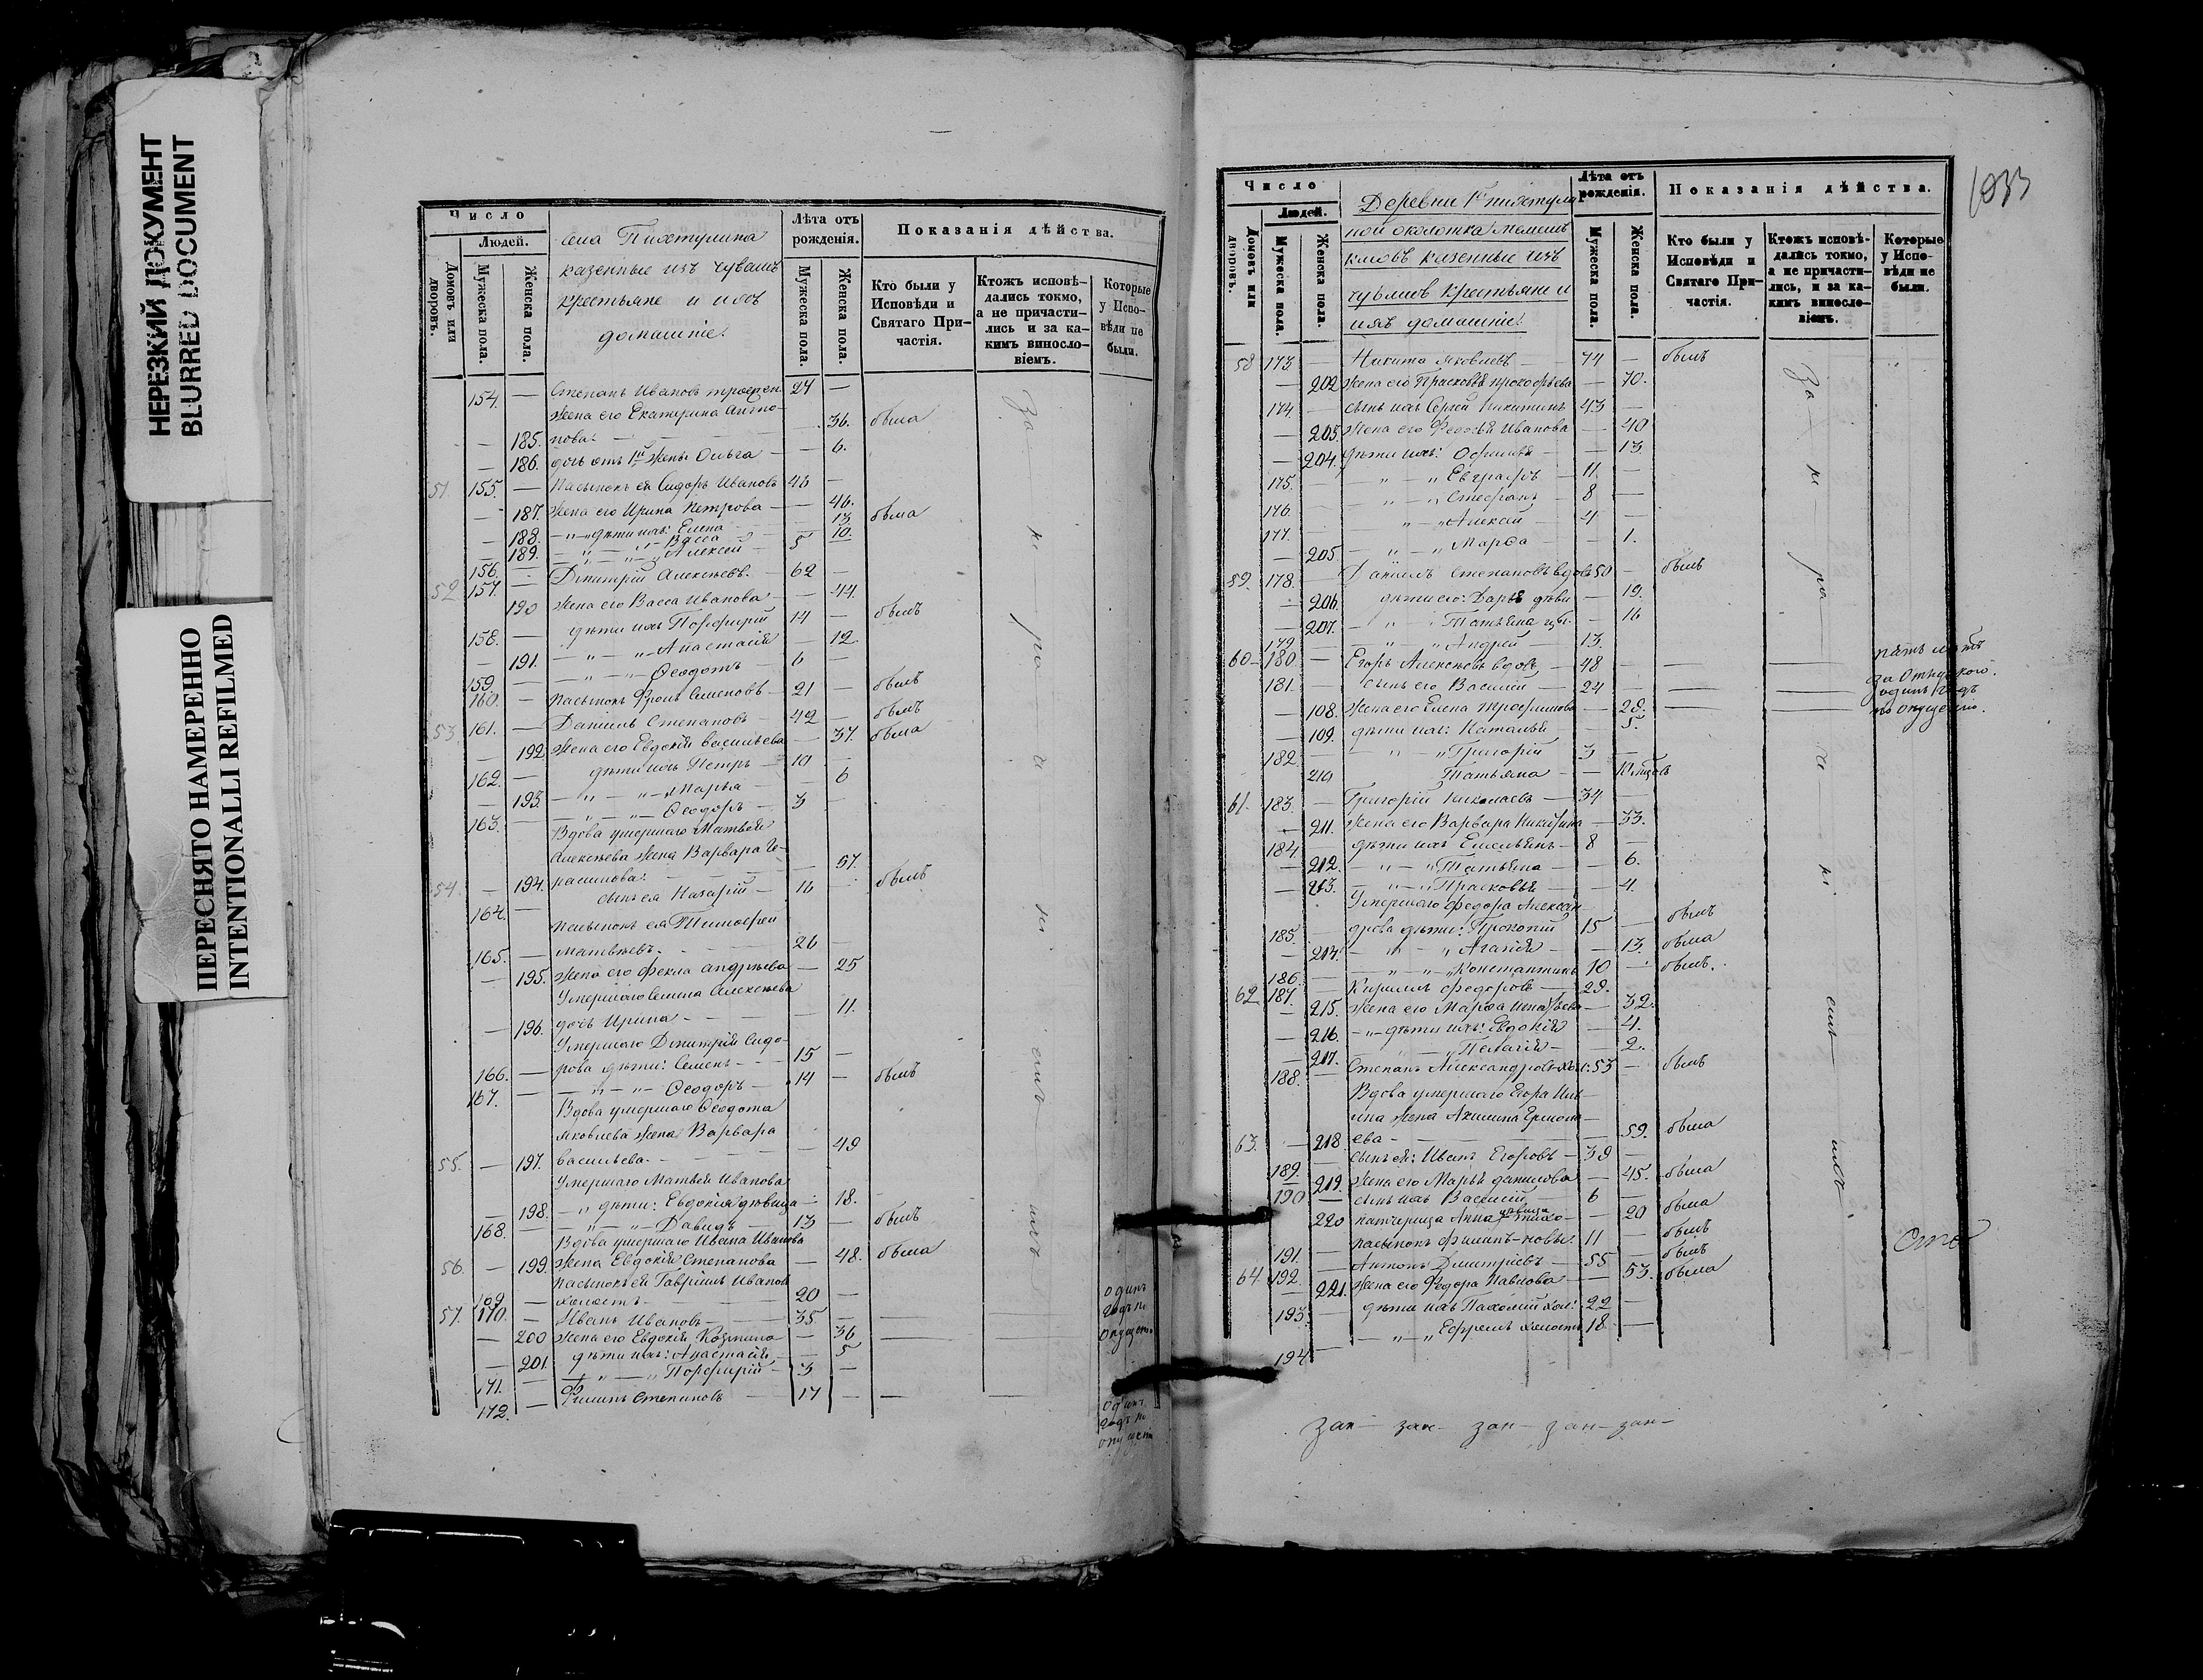 НЕРЕЗКИЙ ДОКУМЕНТ
BLURRED DOCUMENT
ПЕРЕСНЯТО НАМЕРЕННО
INTENTIONALLI REFILMED
Число
Людей.
Домовъ или дворовъ.
Мужеска пола.
Женска пола.
села Пихтулина
казенные изъ чувашъ
крестьяне и ихъ
домашніе.
Лѣта отъ рожденія.
Мужеска пола.
Женска пола.
Показанія дѣйства.
Кто были у Исповѣди и Святаго Причастія.
Ктожъ исповѣдались токмо, а не причастились и за какимъ винословіемъ.
Которые у Исповѣди не были.
154. — Степанъ Ивановъ 24 —
жена его Екатерина Анто-
— 185. нова — 36. была
— 186. дочь отъ 1й жены Ольга — 6.
51. 155. — Пасынокъ ея Сидоръ Ивановъ 40 —
— 187. жена его Ирина Петрова — 40.
— 188. дѣти ихъ: Елена — 13. была
— 189. — Васса — 10.
156. — Алексей 5
52. 157. — Дмитрій Алексѣевъ. — 62 —
190 жена его Васса Иванова — 44.
158. — дѣти ихъ Порфирій 14 — былъ
— 191. — Анастасія — 12.
159 — Ѳеодотъ — 6 —
160. — пасынокъ Фролъ Семеновъ — 21 — былъ
53. 161. — Даніилъ Степановъ — 42 — былъ
— 192 жена его Евдокія Васильева — 37. была
162. — дѣти ихъ Петръ — 10 —
— 193. — Марья — 6
163. — Ѳеодоръ — 3 —
Вдова умершаго Матвѣя
Алексѣева жена Варвара Ге-
54. — 194. расимова: — 57
164. — сынъ ея Назарій — 16 — былъ
пасынокъ ея Тимофей
165. — Матвѣевъ. — 26 —
— 195. жена его Фекла Андрѣева — 25
Умершаго Семена Алексѣева
— 196. дочь Ирина — 11.
Умершаго Дмитрія Сидо-
166. — рова дѣти: Семенъ — 15 —
167. — Ѳеодоръ — 14 — былъ
Вдова умершаго Ѳеодота
Яковлева жена Варвара
55. — 197. Васильева. — 49
Умершаго Матвѣя Иванова
— 198. дѣти: Евдокія дѣвица — 18.
168. — Давидъ — 13 — былъ
Вдова умершаго Ивана Иванова
56. — 199. жена Евдокія Степанова — 48. была
пасынокъ ея Гавріилъ Ивановъ
169 — холостъ — 20 —
57. 170. — Иванъ Ивановъ — 35 —
— 200 жена его Евдокія Козмина — 36
— 201 дѣти ихъ: Анастасія — 5
171. — Порфирій — 3 —
172. — Филипъ Степановъ — 17 — —
За не ра че ні емъ ихъ
одинъ
годъ по
опущенію
одинъ
годъ по
опущенію
1033
Число
Людей.
Домовъ или дворовъ.
Мужеска пола.
Женска пола.
Деревни 1й Пихтули-
ной околотка
казенные изъ
чувашъ крестьяне и
ихъ домашніе.
Лѣта отъ рожденія.
Мужеска пола.
Женска пола.
Показанія дѣйства.
Кто были у Исповѣди и Святаго Причастія.
Ктожъ исповѣдались токмо, а не причастились, и за какимъ винословіемъ.
Которые у Исповѣди не были.
58 173 — Никита Яковлевъ — 74 — былъ
— 202 жена его Прасковья Прокофьева — 70.
174 — сынъ ихъ Сергѣй Никитинъ 43 —
— 203 жена его Ѳеосія Иванова — 40
— 204. дѣти ихъ: — 13.
175. — Евграфъ — 11. —
176 — Стефанъ — 8 —
177. — Алексѣй — 4 —
— 205 — Марѳа — 1.
59. 178. — Данилъ Степановъ вдовъ 50 — былъ
— 206. дѣти его: Дарья — 19.
— 207. — Татьяна — 16
179 — Андрей — 13.
60 180 — Егоръ Алексѣевъ вдовъ — 48 —
181. — сынъ его Василій — 24 —
— 108. жена его Елена Трофимова — 28.
— 109. дѣти ихъ: Наталья — 5.
182. — Григорій 3 —
210 Татьяна —
61. 183. — Григорій Николаевъ — 34 —
— 211. жена его Варвара — 33.
184 — дѣти ихъ Емельянъ — 8 —
— 212. — Татьяна — 6.
— 213. — Прасковья — 4.
Умершаго Федора Алексан-
185. — дрова дѣти: Прокопій 15 — былъ
— 214. — Агафія — 13. была
186. — Константинъ 10 — былъ.
62 187. — Кирилъ Федоровъ — 29. —
— 215. жена его Марѳа — 32.
— 216. — дѣти ихъ: Евдокія — 4.
— 217. — Пелагія — 2.
188. — Степанъ Александровъ 53 — былъ
Вдова умершаго Егора Иль-
ина жена Акилина Ермола-
63. — 218 ева — 59. была
189. — сынъ ея: Иванъ Егоровъ — 39 —
— 219. жена его Марья Данилова — 45. была
190 — сынъ ихъ Василій — 6 —
220 падчерица Анна дѣвица — 20 была
191. — пасынокъ Филипъ 11 — былъ
64 192. — Антонъ Дмитріевъ — 55 — былъ
— 221. жена его Ѳедора Павлова — 53. была
193. — дѣти ихъ Пахомій хол: 22 —
194 — Ефремъ холостъ 18. —
За не ра че ні емъ ихъ
пять лѣтъ
одинъ годъ
по опущенію.